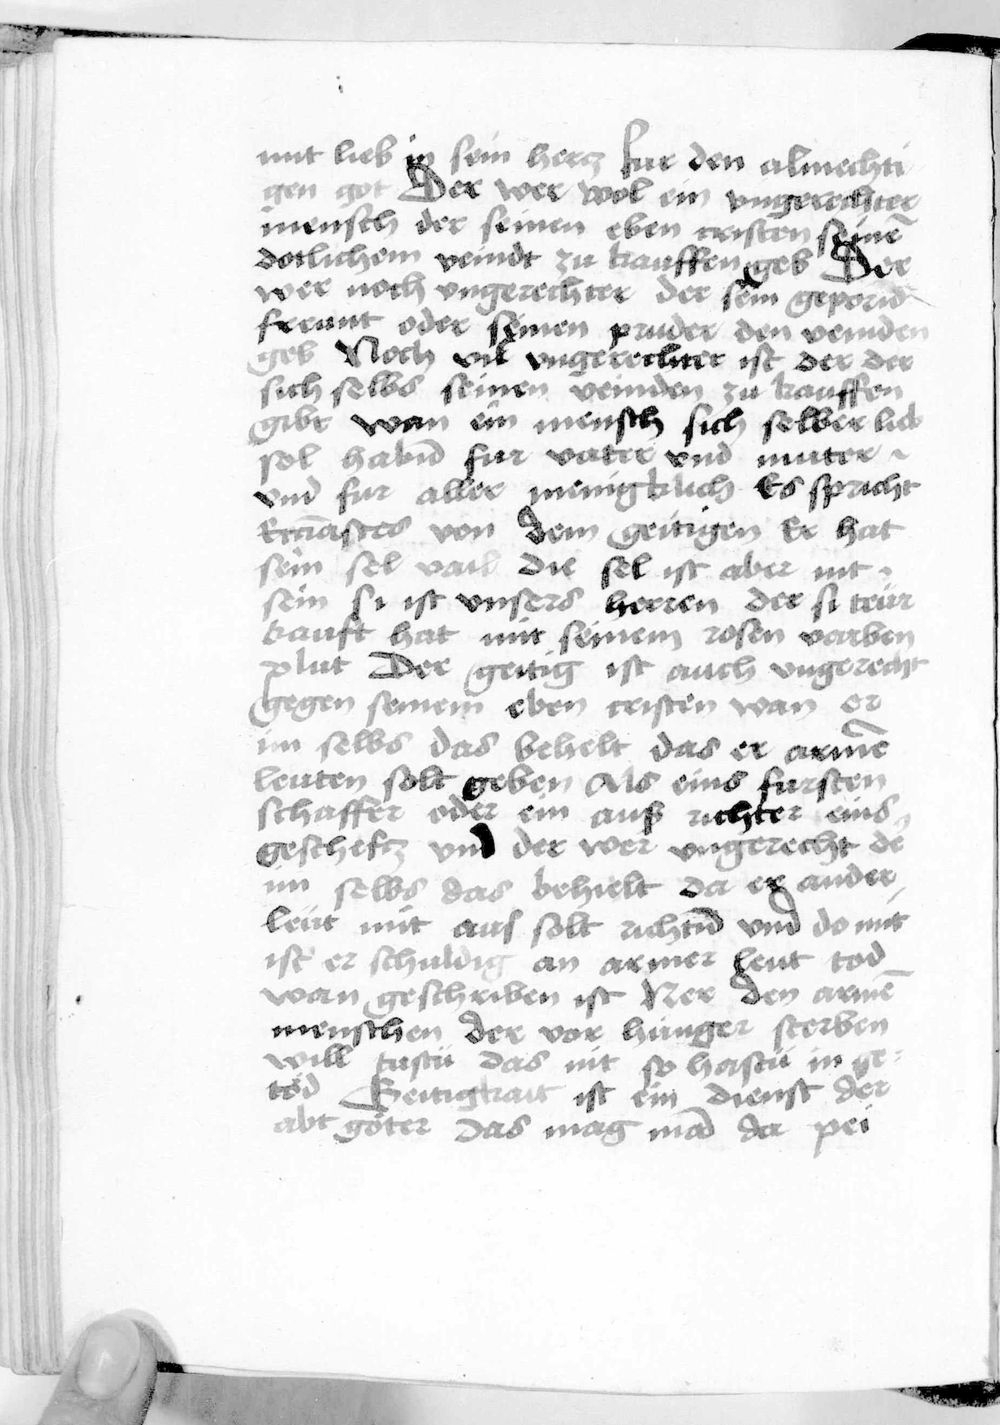 mit lieb in sein hercz fur den almechti
gen got Der wer wol ein vngerechter
mensch der seinen eben cristen seinē
dotlichem veindt zu kauffen geb Der
wer noch vngerechter der sein geporn̄
freunt oder seinen pruder den veinden
geb Noch vil vngerechter ist der der
sich selbs seinen veinden zu kauffen
gibt wan ein mensch sich selber lieb
sol habn̄ fur vater vnd muter
vnd fur aller menigklich Es spricht
Ecc̄iastes von dem geitigen Er hat
sein sel vail die sel ist aber nit
sein si ist vnsers herren der si teür
kauft hat mit seinem rosen varben
plut Der geitig ist auch vngerecht
gegen seinem eben cristen wan er
im selbs das behelt das er armē
leuten solt geben Als eins fursten
schaffer oder ein auß richter eins
geschefcz vnd der wer vngerecht de
im selbs das behielt da er ander
leüt mit aus solt richtn̄ vnd do mit
ist er schuldig an armer leut tod
wan geschriben ist Ner den armē
menschen der vor hunger sterben
will tustu das nit so hastu in ge
töd Geitigkait ist ein dienst der
abt göter Das mag mā da pei